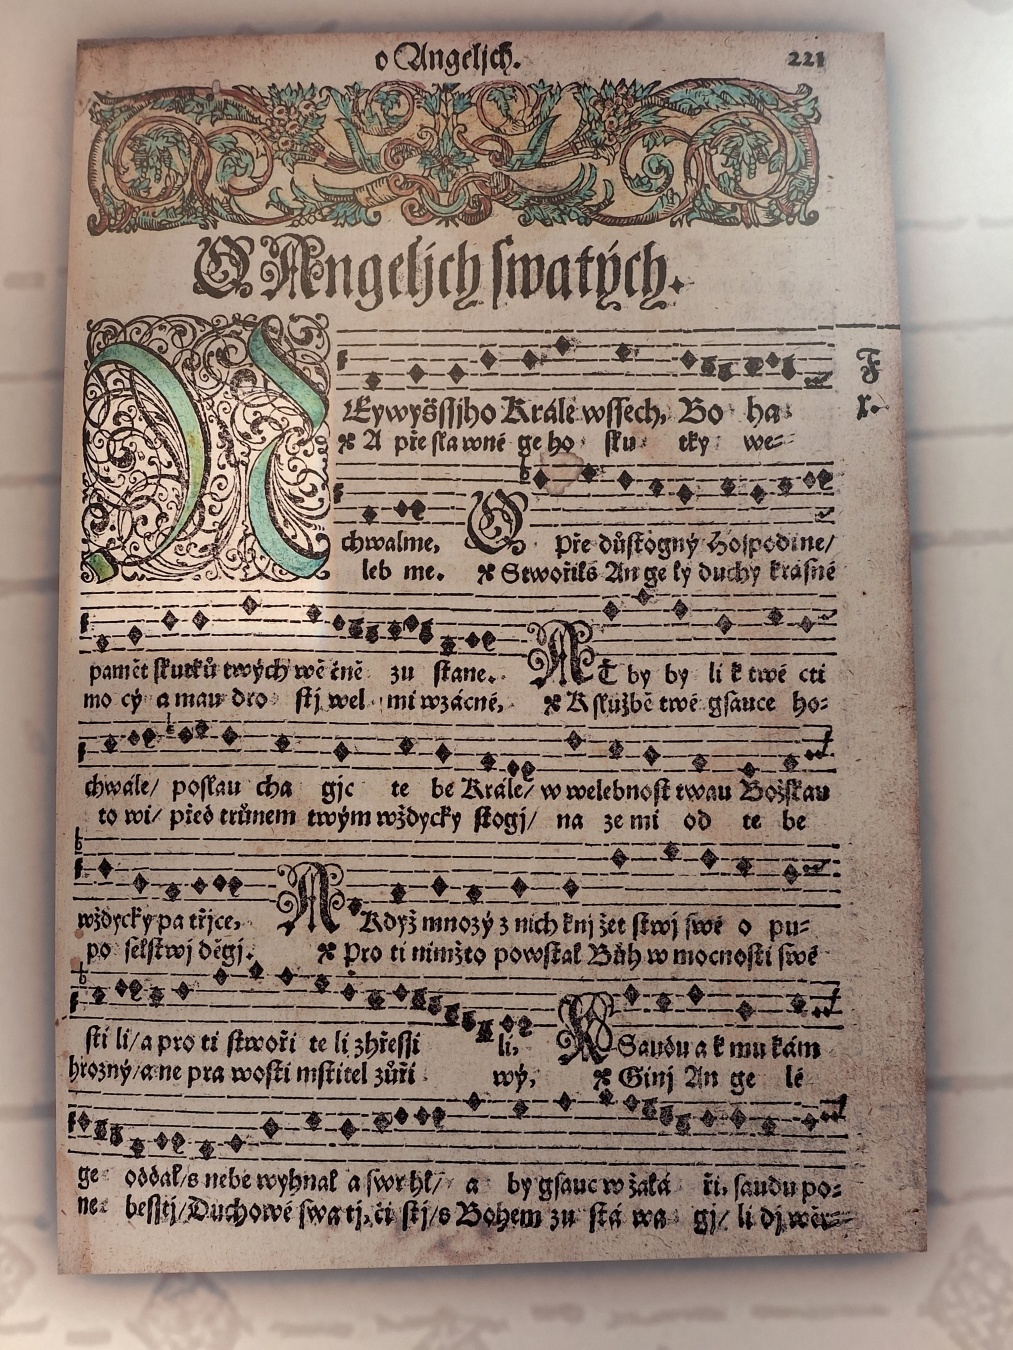 o Angeljch. 221
O Angeljch swatých.
F
NEywyšssjho Krále wssech, Bo ha
r.
※ A pře sla wné ge ho sku tky we=
chwalme, O pře důstogný Hospodine/
leb me. ※ Stwořils An ge ly duchy krásné
pamět skutků twých wě čně zu stane. At by by li k twé cti
mo cý a mau dro stj wel mi wzácné, ※ K službě twé gsauce ho=
chwále/ poslau cha gjc te be Krále/ w welebnost twau Božskau
to wi/ před trůnem twým wždycky stogj/ na ze mi od te be
wždycky pa třjce, A Když mnozý z nich knj žet stwj swé o pu=
po selstwj děgj. ※ Pro ti nimžto powstal Bůh w mocnosti swé
sti li/ a pro ti stwoři te li zhřessi li, W Saudu a k mu kám
hrozný/ a ne pra wosti mstitel zůři wý, ※ Ginj An ge lé
ge oddal/ s nebe wyhnal a swrhl/ a by gsauc w žalá ři, saudu po=
ne besstj/ Duchowé swa tj, či stj/ s Bohem zu stá wa gj/ li dj wěr=